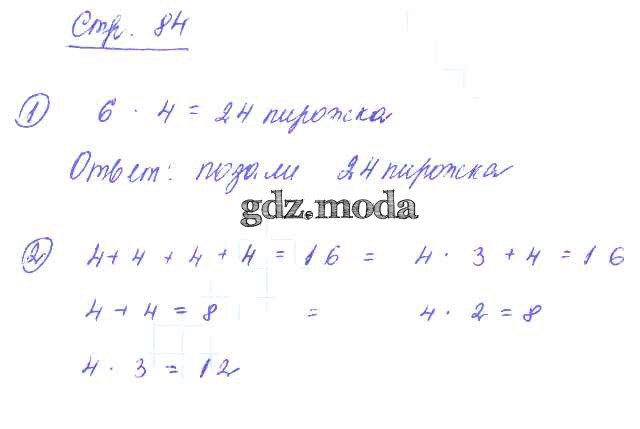 Стр. 84
1) 6 · 4 = 24 пирожка
Ответ: подали 24 пирожка
gdz.moda
2) 4 + 4 + 4 + 4 = 16 = 4 · 3 + 4 = 16
4 + 4 = 8 = 4 · 2 = 8
4 · 3 = 12